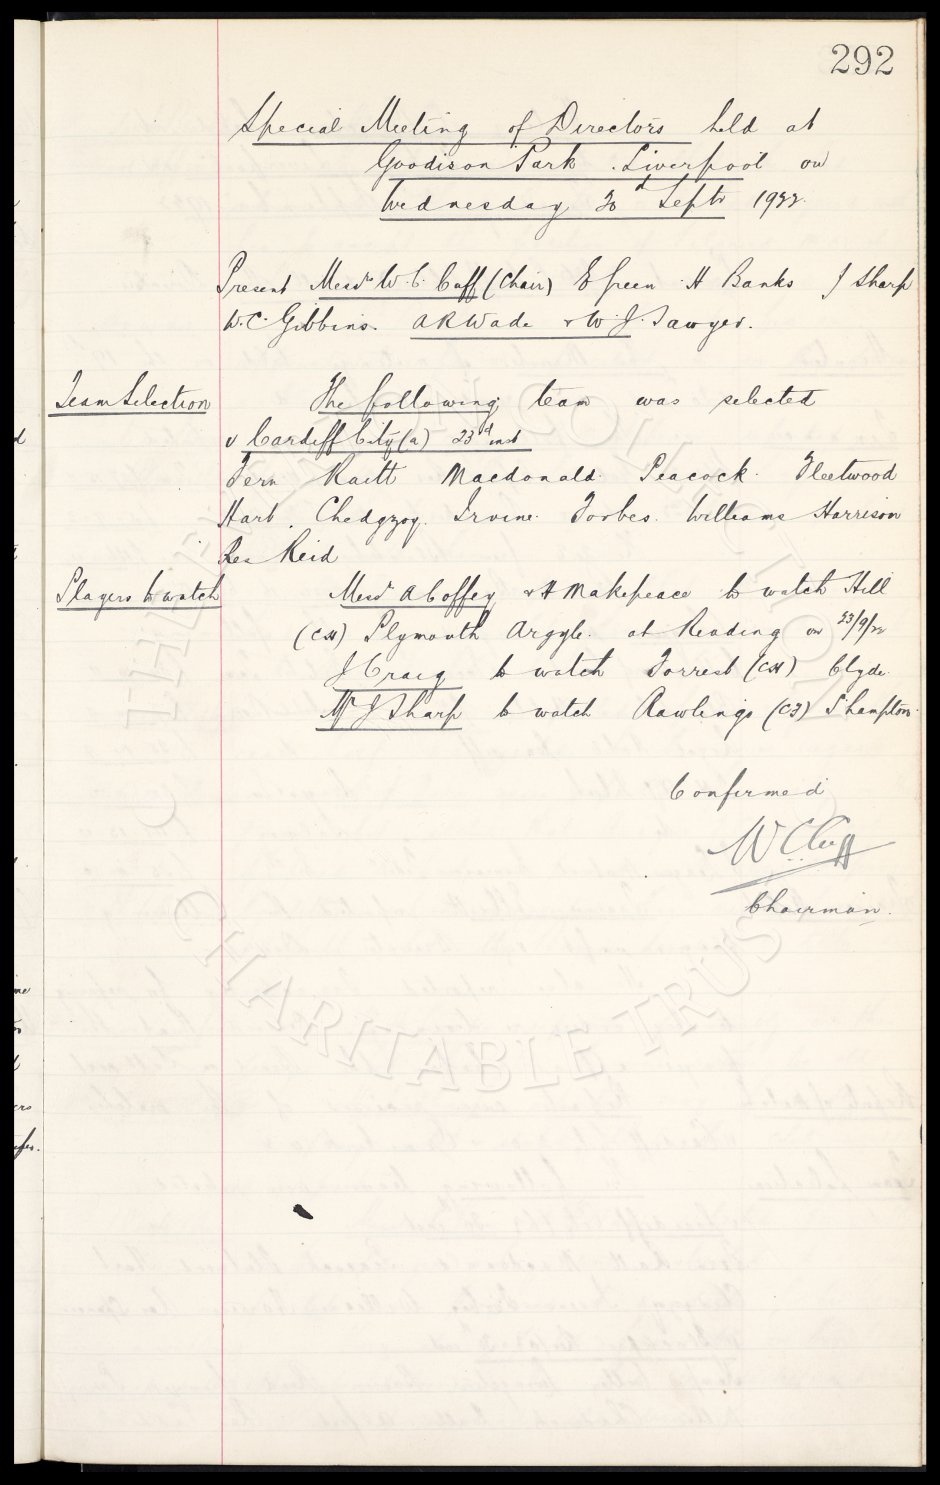 292
Special Meeting of Directors held at
Goodison Park. Liverpool on
Wednesday 20 Septr 1922.
Present Messrs W. C. Cuff (Chair) E Green. H Banks J Sharp
W. C. Gibbins. A R Wade & W. J. Sawyer.
Team Selection
The following team was selected
v Cardiff City (a) 23d inst
Fern Raitt Macdonald Peacock. Fleetwood
Hart. Chedgzoy. Irvine. Forbes. Williams Harrison
Res Reid
Players to watch
Messrs A Coffey & H Makepeace to watch Hill
(CH) Plymouth Argyle. at Reading on 23/9/22
J Craig to watch Forrest (CH) Clyde.
Mr J Sharp to watch Rawlings (CF) S'hampton.
Confirmed
W C Cuff
Chairman.
THE EVERTON COLLECTION
CHARITABLE TRUST